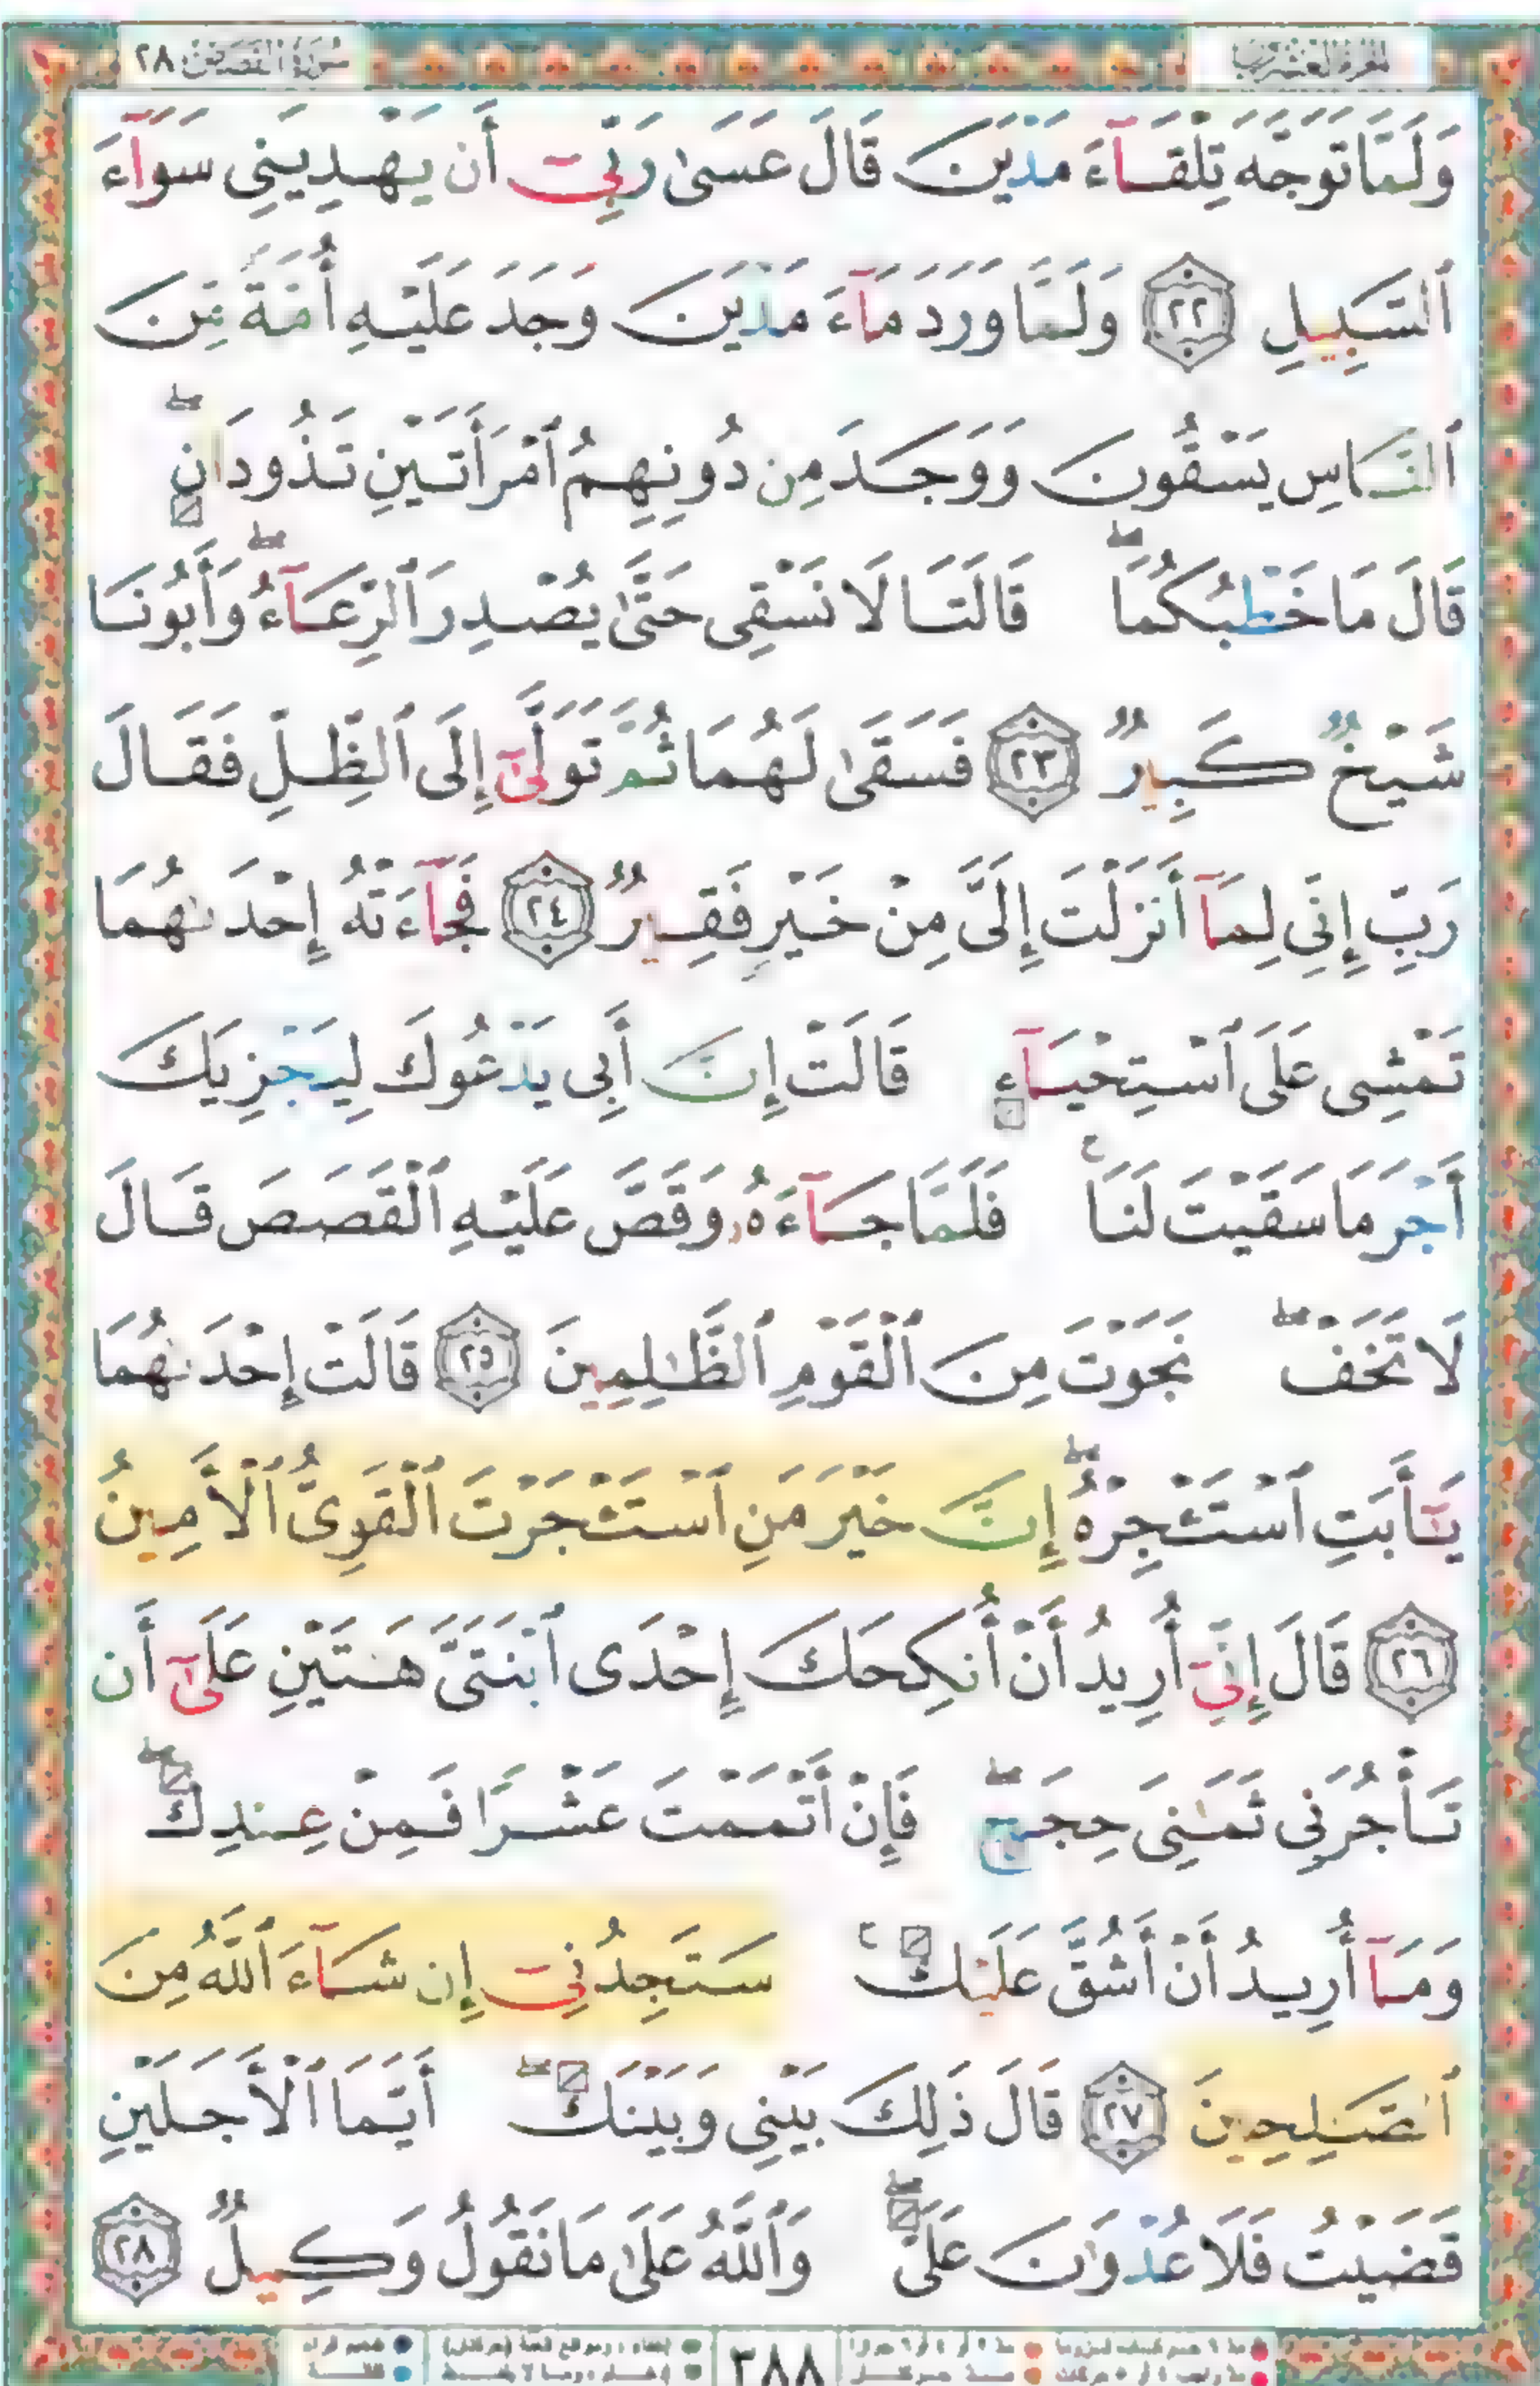 سُورَةُ القَصَصِ ٢٨
وَلَمَّا تَوَجَّهَ تِلْقَآءَ مَدْيَنَ قَالَ عَسَىٰ رَبِّىٓ أَن يَهْدِيَنِى سَوَآءَ
ٱلسَّبِيلِ ٢٢ وَلَمَّا وَرَدَ مَآءَ مَدْيَنَ وَجَدَ عَلَيْهِ أُمَّةً مِّنَ
ٱلنَّاسِ يَسْقُونَ وَوَجَدَ مِن دُونِهِمُ ٱمْرَأَتَيْنِ تَذُودَانِ ۖ
قَالَ مَا خَطْبُكُمَا ۖ قَالَتَا لَا نَسْقِى حَتَّىٰ يُصْدِرَ ٱلرِّعَآءُ ۖ وَأَبُونَا
شَيْخٌ كَبِيرٌ ٢٣ فَسَقَىٰ لَهُمَا ثُمَّ تَوَلَّىٰٓ إِلَى ٱلظِّلِّ فَقَالَ
رَبِّ إِنِّى لِمَآ أَنزَلْتَ إِلَىَّ مِنْ خَيْرٍ فَقِيرٌ ٢٤ فَجَآءَتْهُ إِحْدَىٰهُمَا
تَمْشِى عَلَى ٱسْتِحْيَآءٍ قَالَتْ إِنَّ أَبِى يَدْعُوكَ لِيَجْزِيَكَ
أَجْرَ مَا سَقَيْتَ لَنَا ۚ فَلَمَّا جَآءَهُۥ وَقَصَّ عَلَيْهِ ٱلْقَصَصَ قَالَ
لَا تَخَفْ ۖ نَجَوْتَ مِنَ ٱلْقَوْمِ ٱلظَّٰلِمِينَ ٢٥ قَالَتْ إِحْدَىٰهُمَا
يَٰٓأَبَتِ ٱسْتَـْٔجِرْهُ ۖ إِنَّ خَيْرَ مَنِ ٱسْتَـْٔجَرْتَ ٱلْقَوِىُّ ٱلْأَمِينُ
٢٦ قَالَ إِنِّىٓ أُرِيدُ أَنْ أُنكِحَكَ إِحْدَى ٱبْنَتَىَّ هَٰتَيْنِ عَلَىٰٓ أَن
تَأْجُرَنِى ثَمَٰنِىَ حِجَجٍ ۖ فَإِنْ أَتْمَمْتَ عَشْرًا فَمِنْ عِندِكَ ۖ
وَمَآ أُرِيدُ أَنْ أَشُقَّ عَلَيْكَ ۚ سَتَجِدُنِىٓ إِن شَآءَ ٱللَّهُ مِنَ
ٱلصَّٰلِحِينَ ٢٧ قَالَ ذَٰلِكَ بَيْنِى وَبَيْنَكَ ۖ أَيَّمَا ٱلْأَجَلَيْنِ
قَضَيْتُ فَلَا عُدْوَٰنَ عَلَىَّ ۖ وَٱللَّهُ عَلَىٰ مَا نَقُولُ وَكِيلٌ ٢٨
٣٨٨